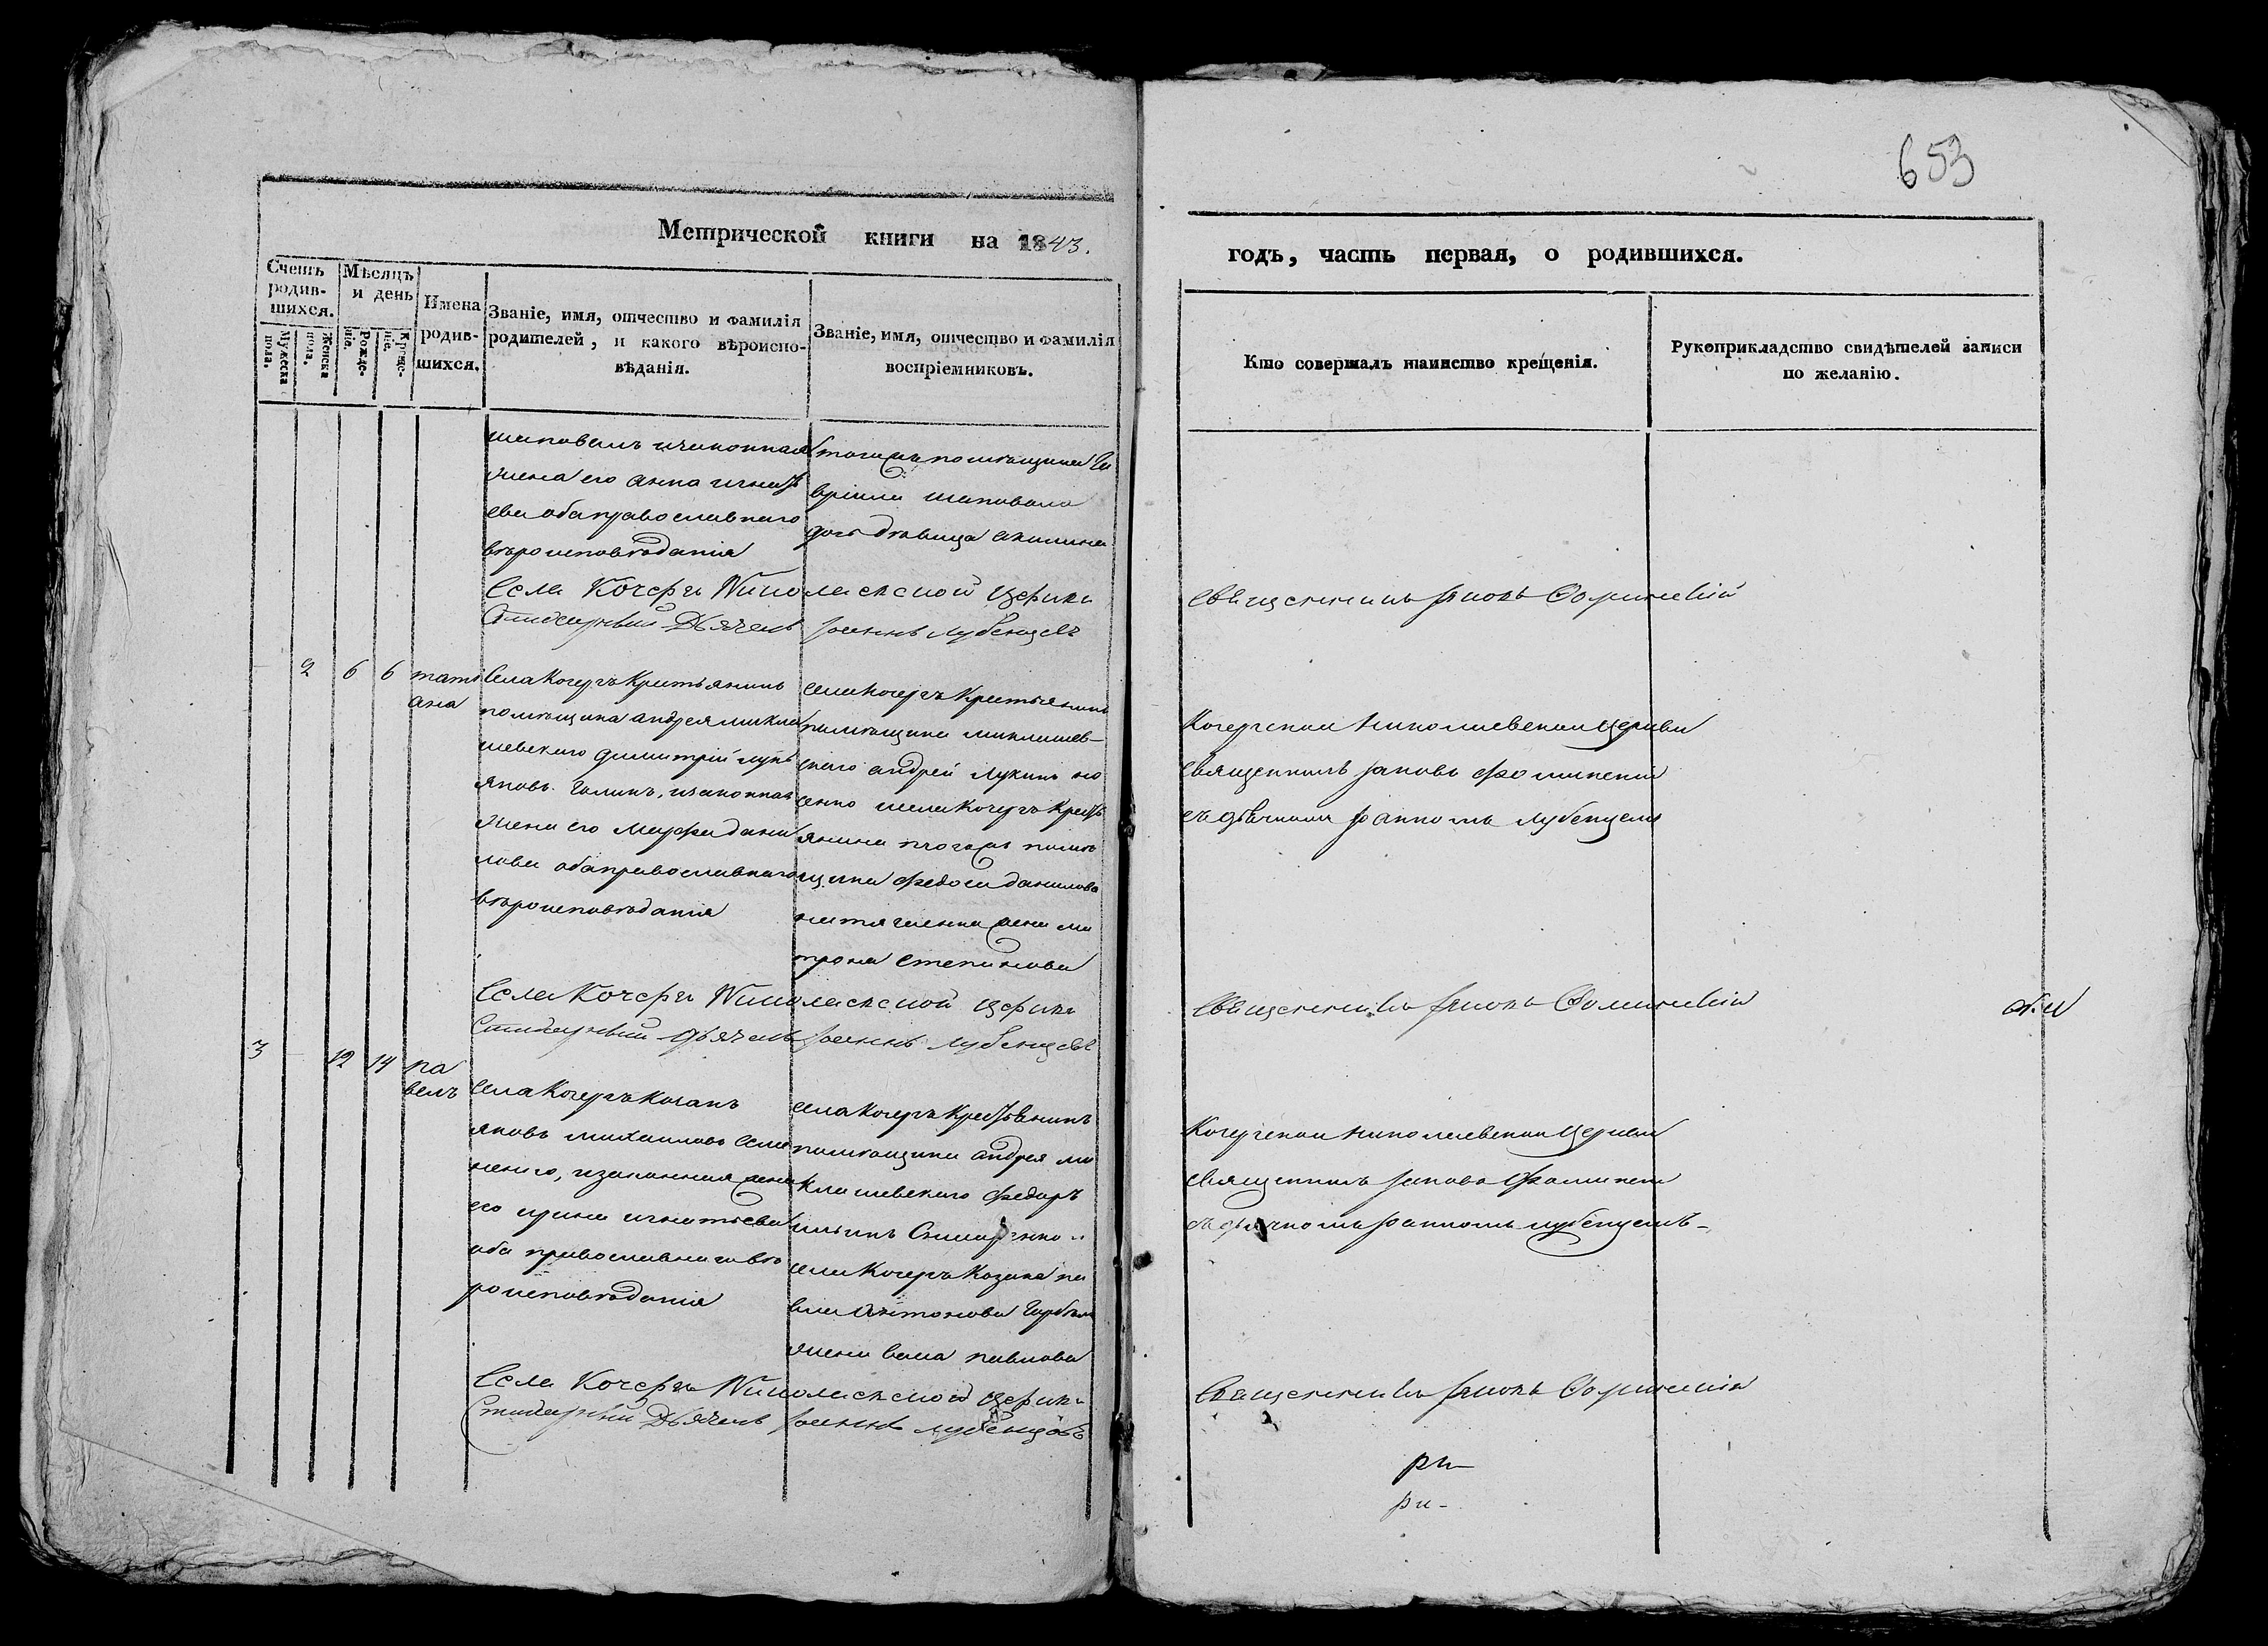 653
Метрической книги на 1843.
годъ, часть первая, о родившихся.
Счетъ родив-
шихся.
Мужеска пола.
Женска пола.
Мѣсяцъ и день
Рожде-
ніе.
Креще-
ніе.
Имена
родив-
шихся.
Званіе, имя, отчество и фамилія
родителей, и какого вѣроиспо-
вѣданія.
Званіе, имя, отчество и фамилія
воспріемниковъ.
Кто совершалъ таинство крещенія.
Рукоприкладство свидѣтелей записи
по желанію.
шаповалъ изаконная
жена его анна игнать
ева оба православнаго
вѣроисповѣданія
тогожъ помѣщика Га
вріила шаповала
дочь дѣвица акилина
Села Кочергъ Николаевской церкви
Священникъ Іяковъ Фоминскій
Стихарный Дьячекъ Іоаннъ Лубенцевъ
2 6 6 тати
ана
Села Кочергъ Крестьянинъ
помѣщика андрея микла
шевскаго димитрій лукь
яновъ Галинъ, изаконная
жена его марфа дани
лова оба православнаго
вѣроисповѣданія
села Кочергъ Крестьянинъ
помѣщика миклашев-
скаго андрей Лукинъ
села Кочергъ Кресть
янина тогожъ помѣ
щика федосия данилова
жена ма
трона степанова
Кочергской николаевской Церкви
священникъ Іаковъ Фоминскій
съ дьячкомъ Іоанномъ Лубенцемъ
Села Кочергъ Николаевской церкви
Священникъ Іяковъ Фоминскій
Стихарный дьячекъ Іоаннъ Лубенцевъ
3 12 14 па
велъ
Села Кочергъ Козакъ
яковъ михаиловъ Семе
ненко, изаконная жена
его ирина игнатьева
оба православнаго вѣ
роисповѣданія
села Кочергъ Крестьянинъ
помѣщика андрея ми
клашевскаго федоръ
ильинъ
села Кочергъ Козака па
вла антонова
жена павлова
Кочергской николаевской Церкви
священникъ Іаковъ Фоминскій
съ дьячкомъ Іоанномъ лубенцемъ-
Села Кочергъ Николаевской церкви
Священникъ Іяковъ Фоминскій
Стихарный Дьячекъ Іоаннъ лубенцовъ